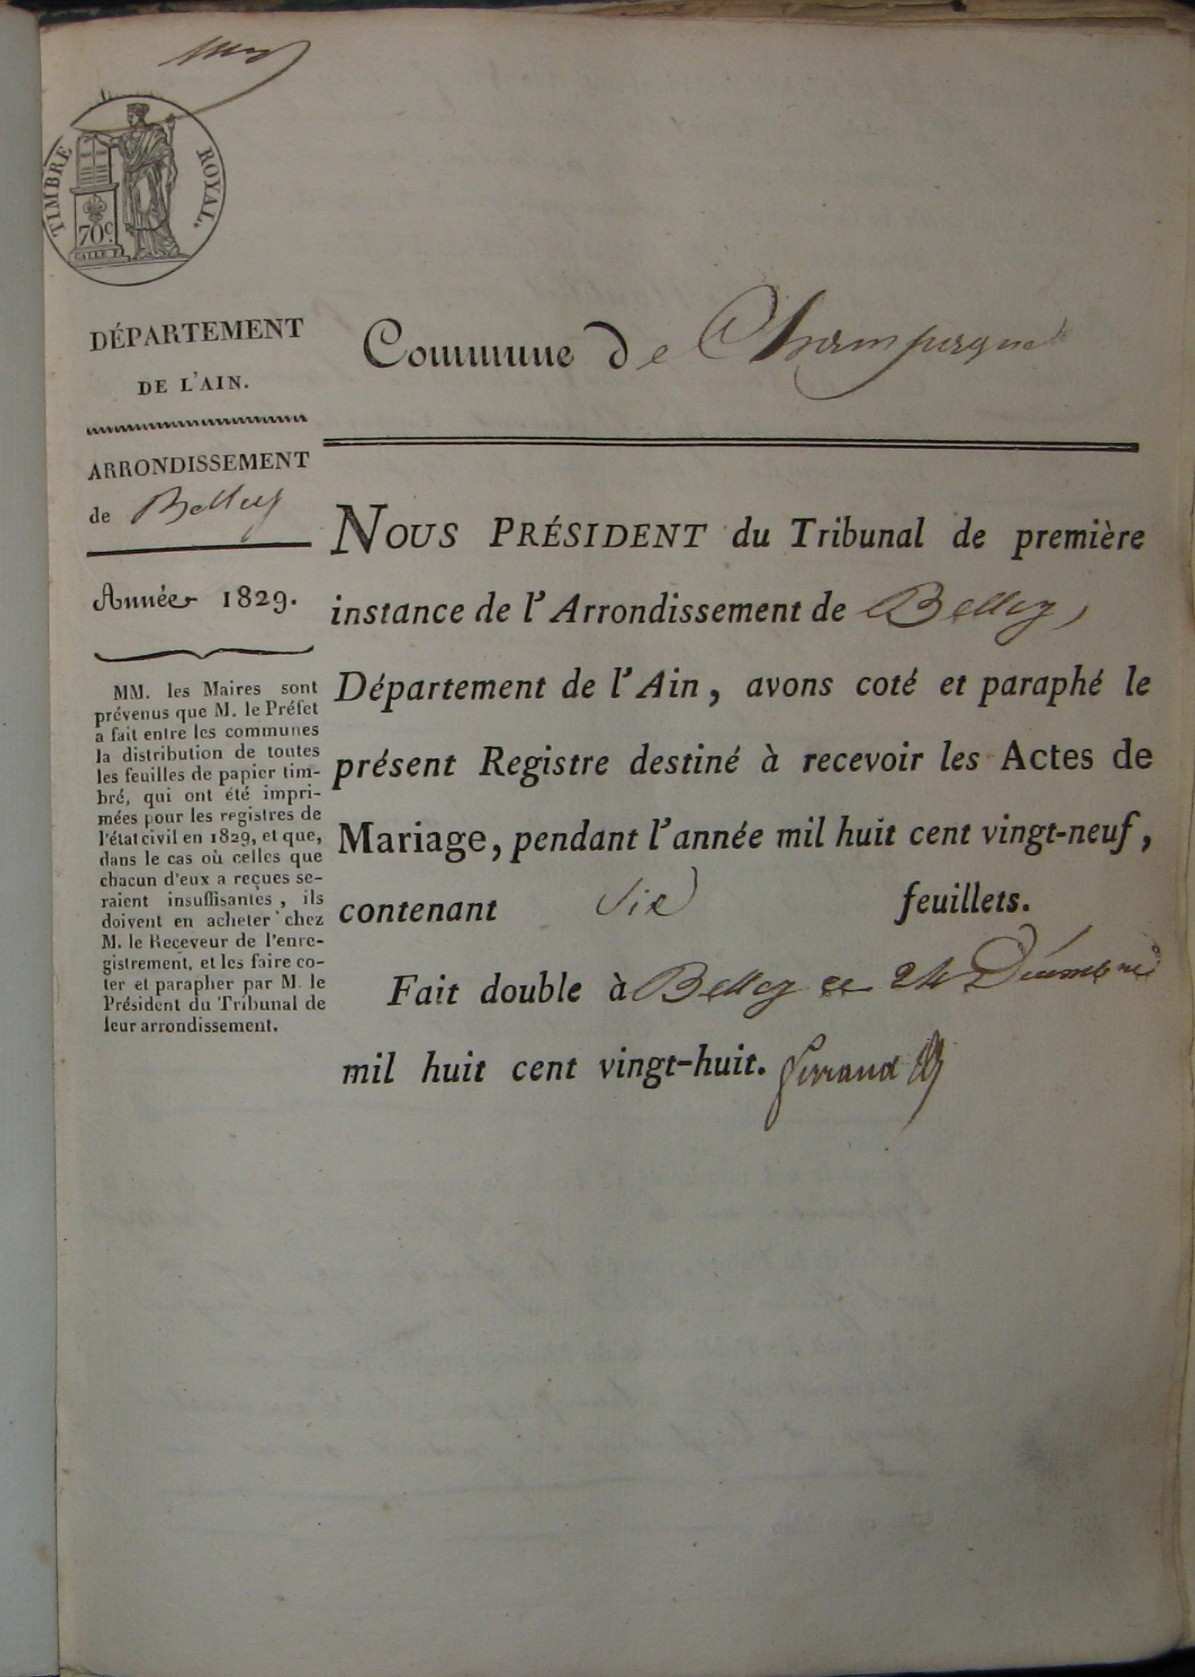 TIMBRE ROYAL.
70 c.
DÉPARTEMENT
DE L'AIN.
ARRONDISSEMENT
de Belley
Année 1829.
MM. les Maires sont
prévenus que M. le Préfet
a fait entre les communes
la distribution de toutes
les feuilles de papier tim-
bré, qui ont été impri-
mées pour les registres de
l'état civil en 1829, et que,
dans le cas où celles que
chacun d'eux a reçues se-
raient insuffisantes, ils
doivent en acheter chez
M. le Receveur de l'enre-
gistrement, et les faire co-
ter et parapher par M. le
Président du Tribunal de
leur arrondissement.
Commune de Champagne
NOUS PRÉSIDENT du Tribunal de première
instance de l'Arrondissement de Belley
Département de l'Ain, avons coté et paraphé le
présent Registre destiné à recevoir les Actes de
Mariage, pendant l'année mil huit cent vingt-neuf,
contenant Six feuillets.
Fait double à Belley ce 24 Décembre
mil huit cent vingt-huit.